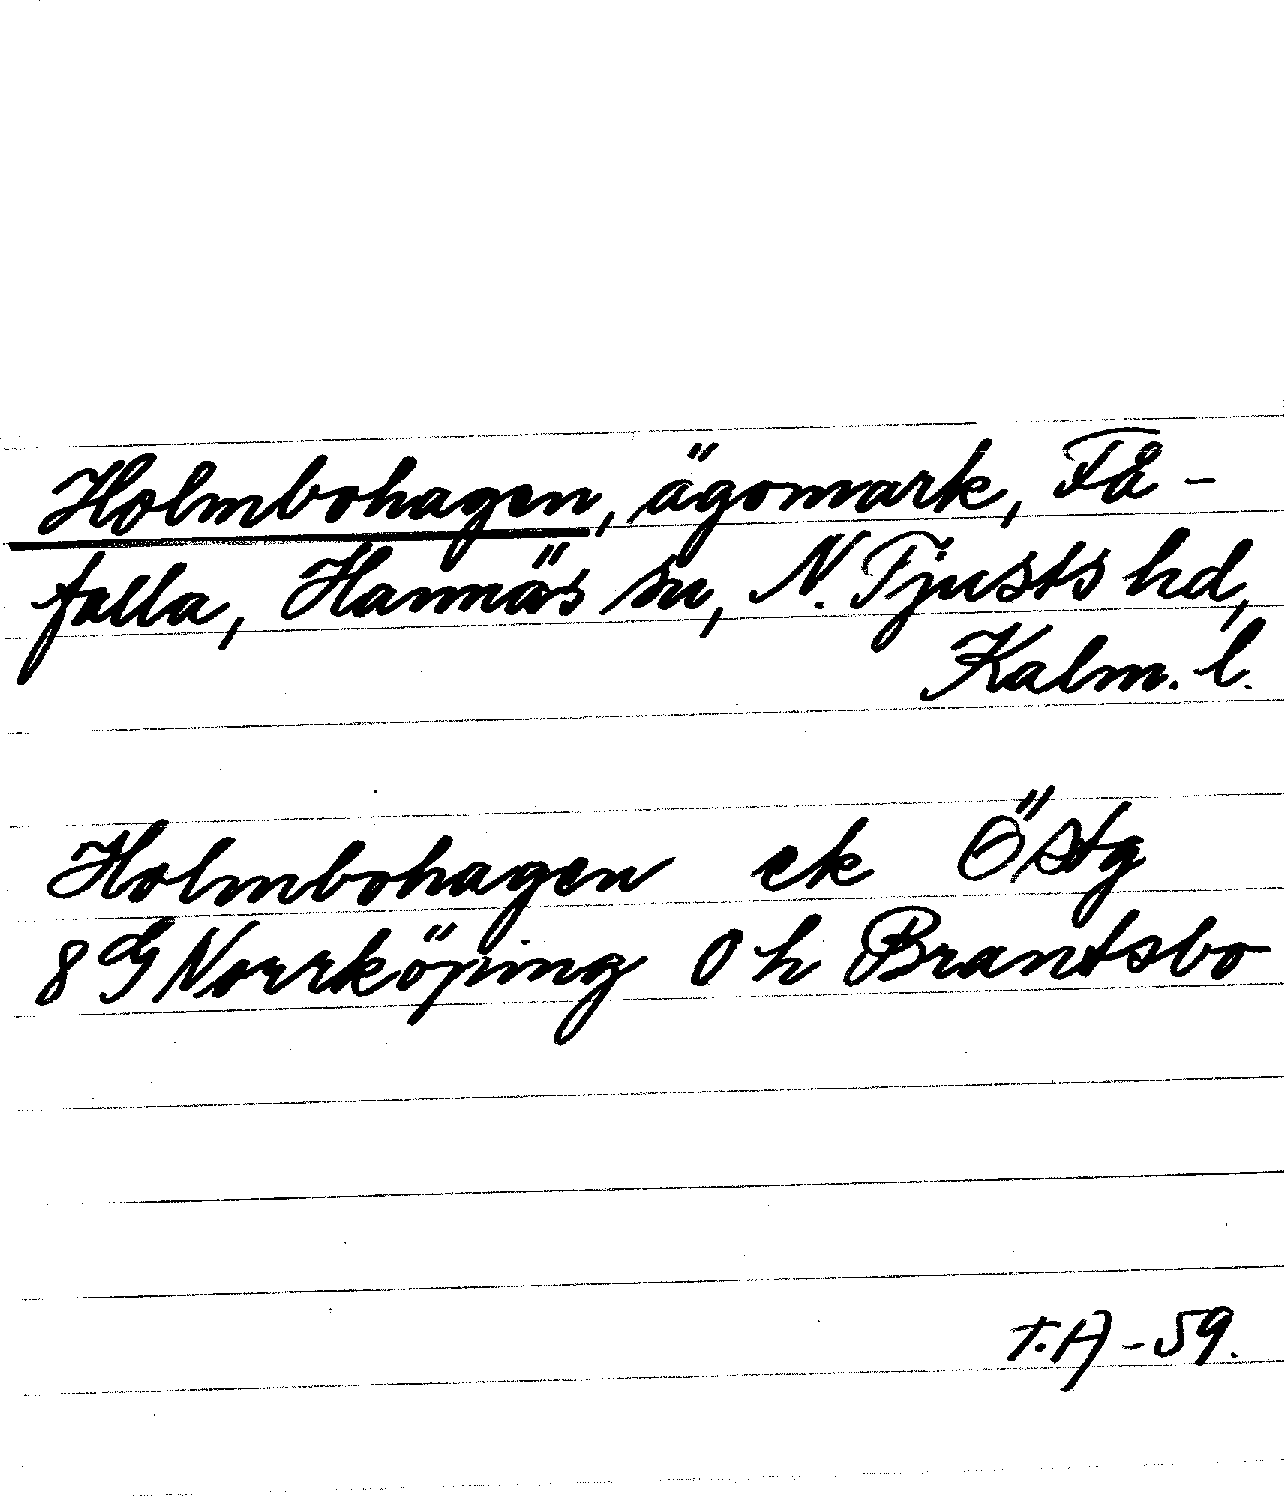 Holmbohagen, ägomark, Få-
falla, Hannäs sn, N. Tjusts hd,
Kalm. l.
Holmbohagen ek Östg
8G Norrköping 0 h Brantsbo
T.A -59.